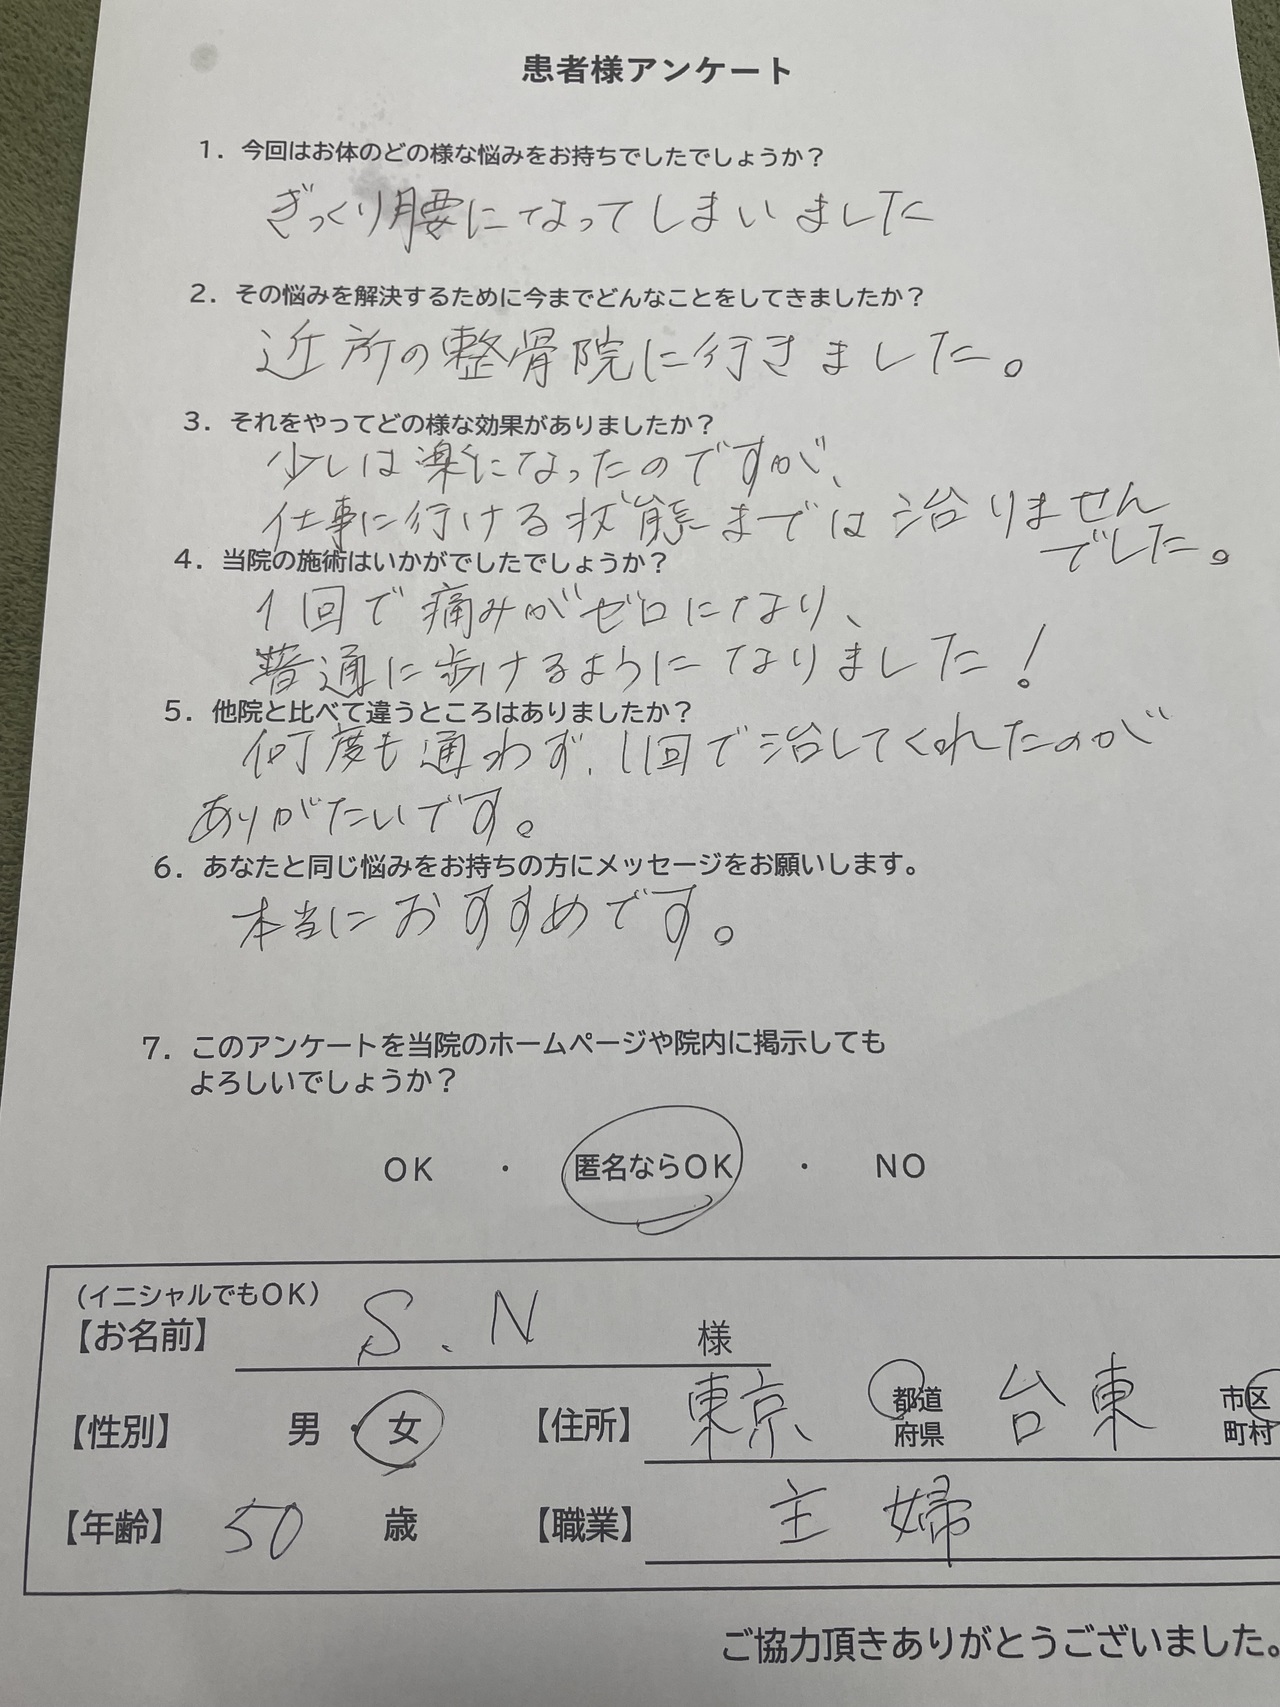 患者様アンケート
1. 今回はお体のどの様な悩みをお持ちでしたでしょうか？
ぎっくり腰になってしまいました
2. その悩みを解決するために今までどんなことをしてきましたか？
近所の整骨院に行きました。
3. それをやってどの様な効果がありましたか？
少しは楽になったのですが、
仕事に行ける状態までは治りません
でした。
4. 当院の施術はいかがでしたでしょうか？
1回で痛みがゼロになり、
普通に歩けるようになりました！
5. 他院と比べて違うところはありましたか？
何度も通わず、1回で治してくれたのが
ありがたいです。
6. あなたと同じ悩みをお持ちの方にメッセージをお願いします。
本当におすすめです。
7. このアンケートを当院のホームページや院内に掲示しても
よろしいでしょうか？
OK ・ 匿名ならOK ・ NO
（イニシャルでもOK）
【お名前】 S.N 様
【性別】 男・女 【住所】 東京 都道府県 台東 市区町村
【年齢】 50 歳 【職業】 主婦
ご協力頂きありがとうございました。